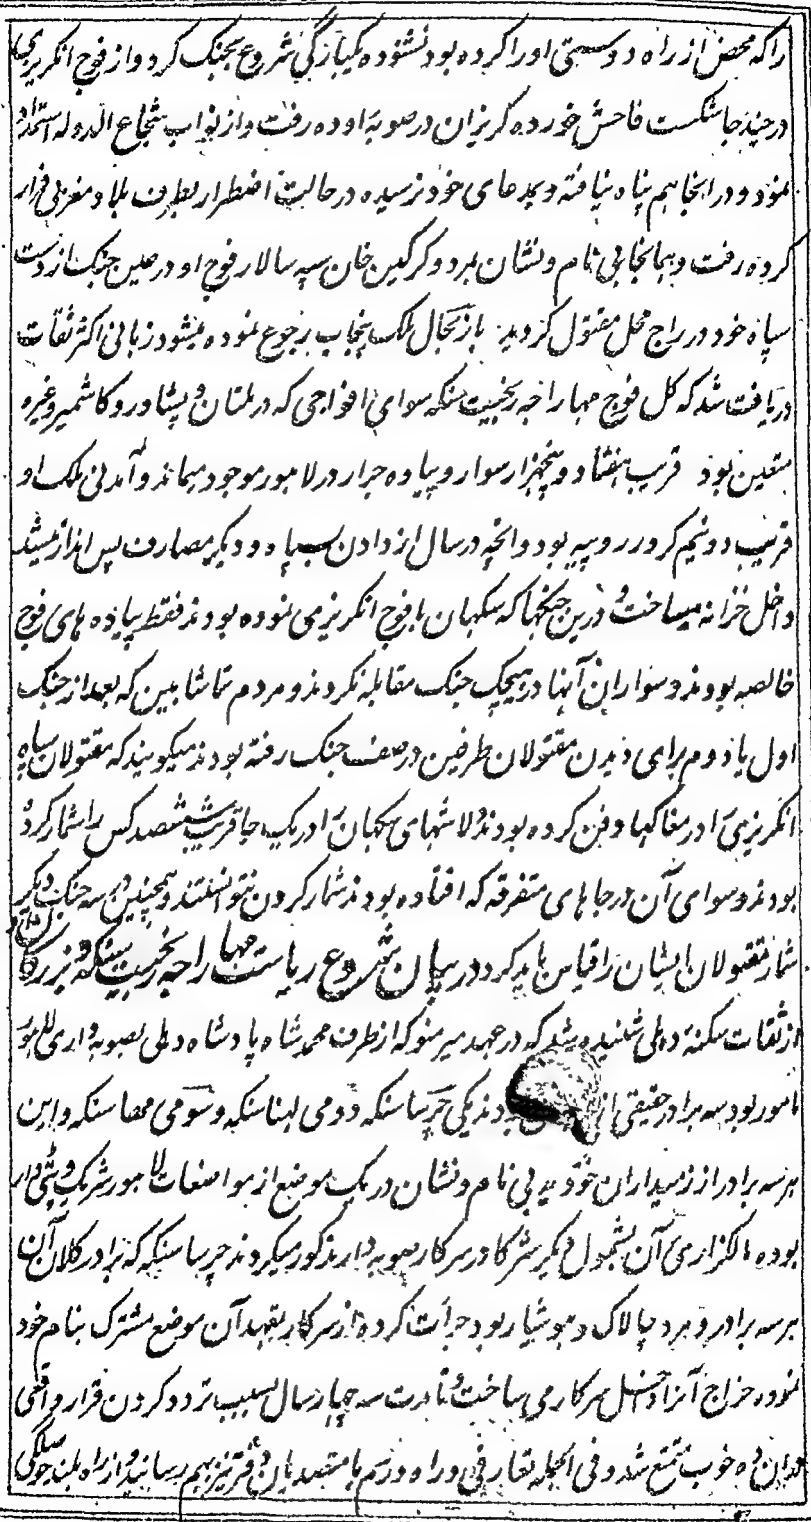 را که محض از راه دوستی او را کرده بود نشنوده یکبارگی شروع بجنگ کرد و از فوج انگریزی
در چند جا شکست فاحش خورده گریزان در صوبه اوده رفت و از نواب شجاع الدوله استمداد
نمود و در انجا هم پناه نیافته و بمدعای خود نرسیده در حالت اضطرار بطرف بلاد مغربی فرار
کرده رفت و بهمانجا بی نام و نشان بمرد و گرگین خان سپه سالار فوج او در عین جنگ از دست
سپاه خود در راج محل مقتول گردید باز بحال ملک پنجاب رجوع نموده میشود زبانی اکثر ثقات
دریافت شد که کل فوج مهاراجه رنجیت سنگه سوای افواجی که در ملتان و پشاور و کاشمیر وغیره
متعین بود قریب هفتاد و پنجهزار سوار و پیاده جرار در لاهور موجود میماند و آمدنی ملک او
قریب دو نیم کرور روپیه بود و انچه در سال از دادن سپاه و دیگر مصارف پس انداز میشد
داخل خزانه میساخت و درین جنگها که سکهان با فوج انگریزی نموده بودند فقط پیاده های فوج
خالصه بودند و سواران آنها در هیچیک جنگ مقابله نکردند و مردم تماشا بین که بعد از جنگ
اول یا دوم برای دیدن مقتولان طرفین در صف جنگ رفته بودند میگویند که مقتولان سپاه
انگریزی را در مغاکها دفن کرده بودند و لاشهای سکهان را در یک جا قریب ششصد کس را شمار کرده
بودند و سوای آن در جاهای متفرقه که افتاده بودند شمار کردن نتوانستند و همچنین در سه جنگ دیگر
شمار مقتولان ایشان را قیاس باید کرد در بیان شروع ریاست مهاراجه رنجیت سنگه و بزرگان
از ثقات سکنه دهلی شنیده شد که در عهد میر منو که از طرف محمد شاه پادشاه دهلی بصوبه داری لاهور
مامور بود سه برادر حقیقی از بودند یکی چرسا سنگه دومی لهنا سنگه و سومی مهما سنگه و این
هر سه برادر از زمینداران بی نام و نشان در یک موضع از مواضعات لاهور شریک و پتی دار
بوده مالگزاری آن بشمول دیگر شرکا در سرکار صوبه دار مذکور میکردند چرسا سنگه که برادر کلان آن
هر سه برادر و مرد چالاک و هوشیار بود جرأت کرده از سرکار بتعهد آن موضع مشترک بنام خود
نموده خراج آنرا داخل سرکار می ساخت و تا مدت سه چهار سال بسبب تردد کردن قرار واقعی
دران ده خوب متمتع شد و فی الجمله تعارفی و راه و رسم با متصدیان دفتر نیز بهم رسانید و از راه بلند حوصلگی